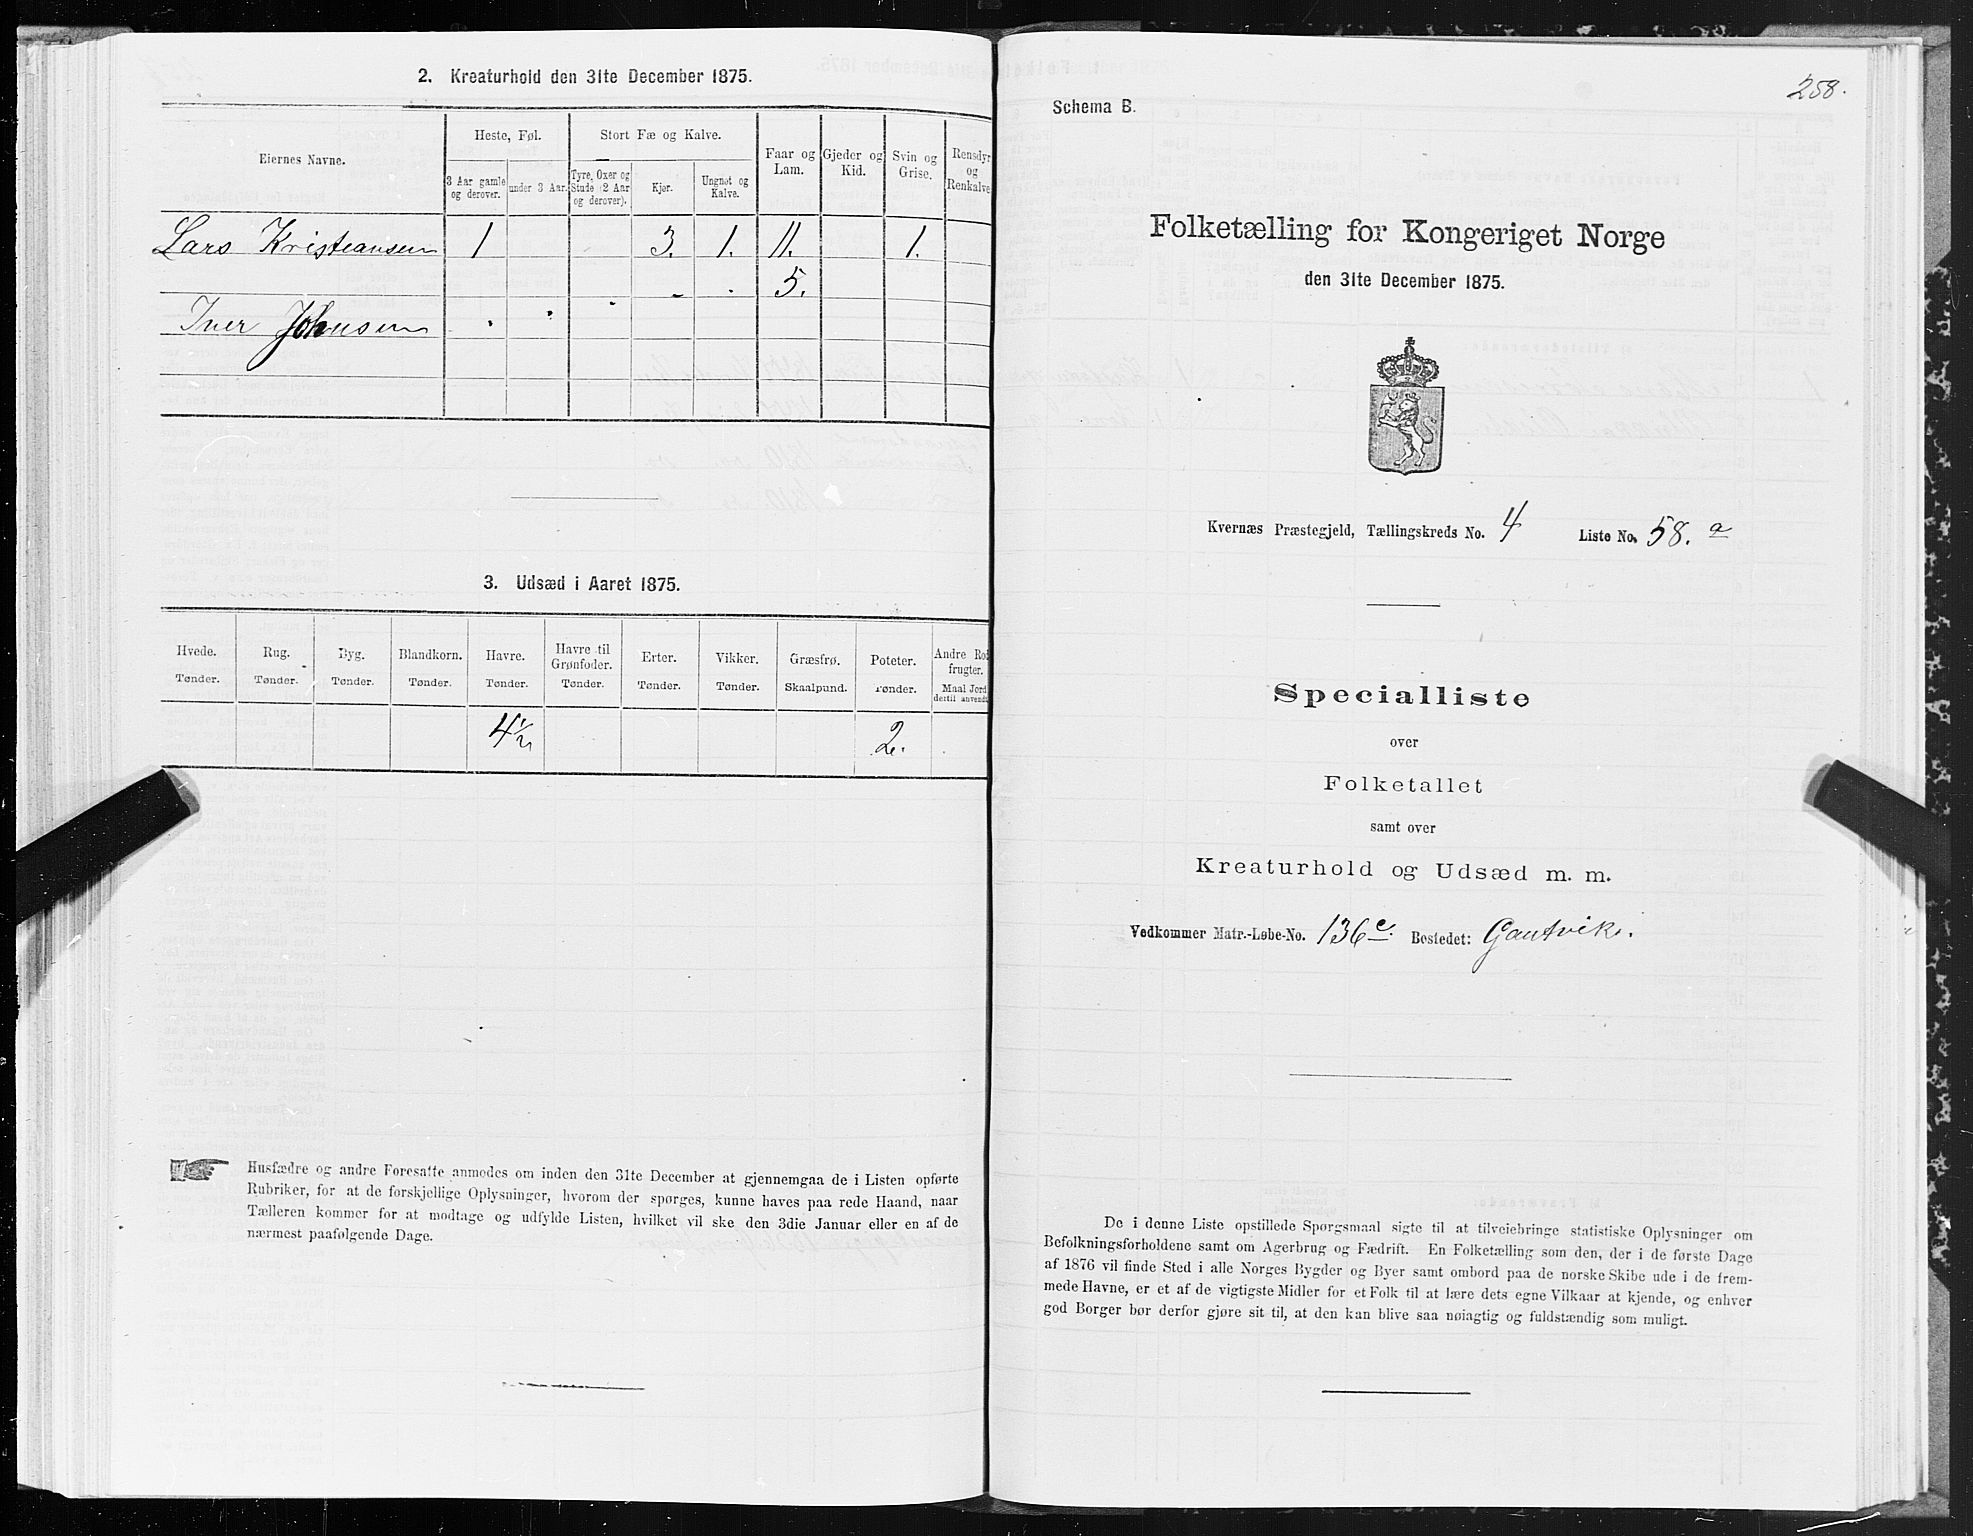 2. Kreaturhold den 31te December 1875.
Eiernes Navne.
Heste, Føl.
Stort Fæ og Kalve.
Faar og Lam.
Gjeder og Kid.
Svin og Grise.
Rensdyr og Renkalve
3 Aar gamle og derover.
under 3 Aar.
Tyre, Oxer og Stude (2 Aar og derover).
Kjør.
Ungnøt og Kalve.
Lars Kristeansen 1 3. 1. 11. 1.
5.
Iver Johnsen
3. Udsæd i Aaret 1875.
Hvede. Rug. Byg. Blandkorn. Havre. Havre til Grønfoder. Erter. Vikker. Græsfrø. Poteter. Andre Rodfrugter.
Tønder. Tønder. Tønder. Tønder. Tønder. Tønder. Tønder. Tønder. Skaalpund. Tønder. Maal Jord dertil anvendt
4 1/2 2.
Husfædre og andre Foresatte anmodes om inden den 31te December at gjennemgaa de i Listen opførte
Rubriker, for at de forskjellige Oplysninger, hvorom der spørges, kunne haves paa rede Haand, naar
Tælleren kommer for at modtage og udfylde Listen, hvilket vil ske den 3die Januar eller en af de
nærmest paafølgende Dage.
258.
Schema B.
Folketælling for Kongeriget Norge
den 31te December 1875.
Kvernæs Præstegjeld, Tællingskreds No. 4 Liste No. 58. a
Specialliste
over
Folketallet
samt over
Kreaturhold og Udsæd m. m.
Vedkommer Matr.-Løbe-No. 136c. Bostedet: Gautvik.
De i denne Liste opstillede Spørgsmaal sigte til at tilveiebringe statistiske Oplysninger om
Befolkningsforholdene samt om Agerbrug og Fædrift. En Folketælling som den, der i de første Dage
af 1876 vil finde Sted i alle Norges Bygder og Byer samt ombord paa de norske Skibe ude i de frem-
mede Havne, er et af de vigtigste Midler for et Folk til at lære dets egne Vilkaar at kjende, og enhver
god Borger bør derfor gjøre sit til, at den kan blive saa nøiagtig og fuldstændig som muligt.